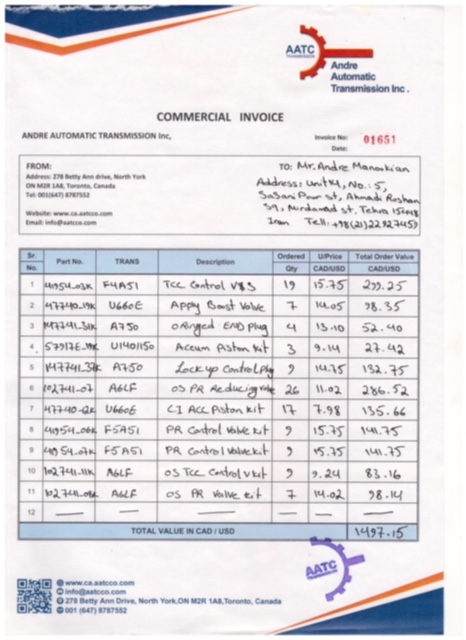 AATC
Andre
Automatic
Transmission Inc .
COMMERCIAL INVOICE
ANDRE AUTOMATIC TRANSMISSION Inc,
Invoice No: 01651
Date:
FROM:
Address: 278 Betty Ann drive, North York
ON M2R 1A8, Toronto, Canada
Tel: 001(647) 8787552
Website: www.ca.aatcco.com
Email: info@aatcco.com
TO: Mr. Andre Manookian
Address: Unit 14, No.: 5,
Sasani Pour st, Ahmadi Roshan
st, Mirdamad st, Tehra
Iran Tell: +98(21)22927459
Sr. No. Part No. TRANS Description Ordered Qty U/Price CAD/USD Total Order Value CAD/USD
1 41954-03K F4A51 TCC Control 19 15.75 299.25
2 47740-19K U660E Apply Boost Valve 7 14.05 98.35
3 147741-31K A750 O Ringed END Plug 4 13.10 52.40
4 57917E-19K Accum Piston Kit 3 9.14 27.42
5 147741-37K A750 Lock up Control Plug 9 14.75 132.75
6 102741-07 A6LF OS PR Reducing 26 11.02 286.52
7 47740-12K U660E C1 ACC Piston Kit 17 7.98 135.66
8 41954-06K F5A51 PR Control Valve kit 9 15.75 141.75
9 41954-07K F5A51 PR Control Valve kit 9 15.75 141.75
10 102741-11K A6LF OS TCC Control V kit 9 9.24 83.16
11 102741-08K A6LF OS PR Valve kit 7 14.02 98.14
12 — — — — — —
TOTAL VALUE IN CAD / USD 1497.15
AATC
www.ca.aatcco.com
info@aatcco.com
278 Betty Ann drive, North York,ON M2R 1A8,Toronto, Canada
001 (647) 8787552